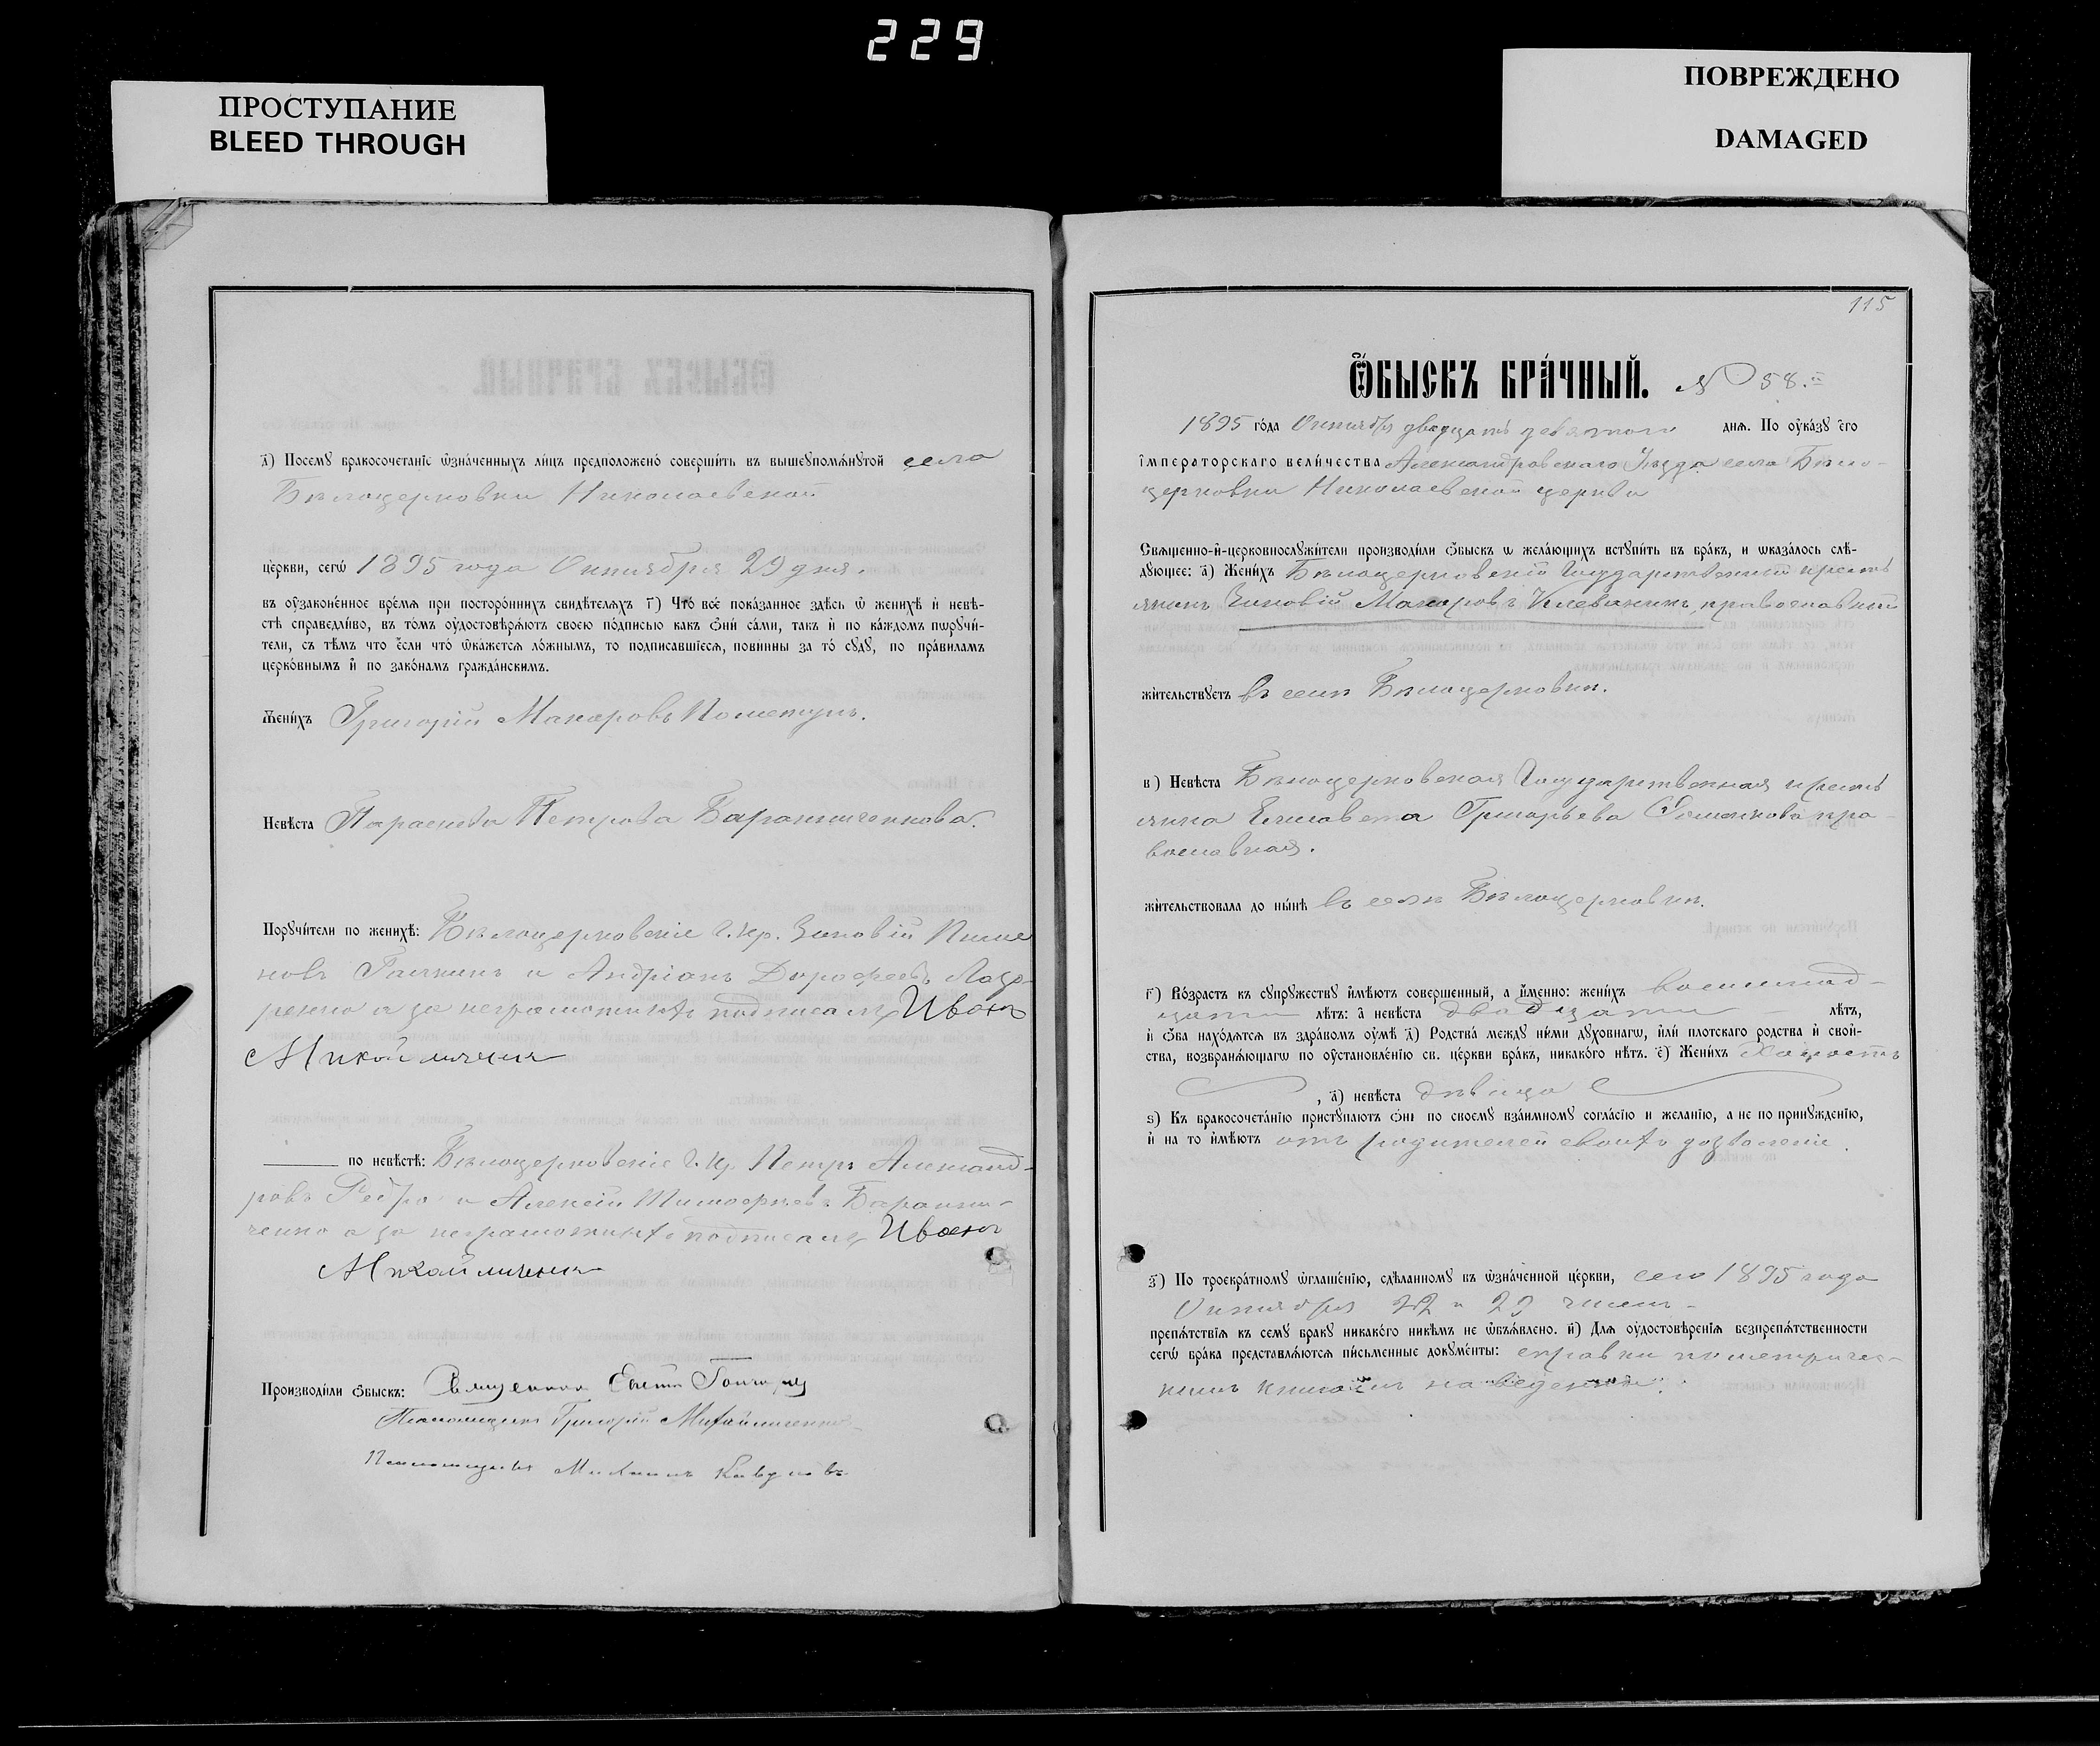 229
ПРОСТУПАНИЕ
BLEED THROUGH
ПОВРЕЖДЕНО
DAMAGED
д҃) Посему бракосочетаніе ѡзначенныхъ лицъ предположено совершить въ вышеупомѧнутой села
Бѣлоцерковки Николаевской
церкви, сегѡ 1895 года Октября 29 дня.
въ оузаконенное времѧ при постороннихъ свидѣтелѧхъ г҃) Что всё показанное здѣсь ѡ женихѣ и невѣ-
стѣ справедливо, въ томъ оудостовѣрѧютъ своею подписью какъ ѻни сами, такъ и по каждомъ пѡручи-
тели, съ тѣмъ что если что ѡкажетсѧ ложнымъ, то подписавшіесѧ, повинны за то суду, по правиламъ
церковнымъ и по законамъ гражданскимъ.
Женихъ Григорій Макаровъ
Невѣста Параскева Петрова Баранниченкова.
Поручители по женихѣ: Бѣлоцерковскіе г. кр. Зиновій
новъ и Андріанъ Дорофеевъ Лаза-
ренко а за неграмотныхъ подписалъ Иванъ
по невѣстѣ: Бѣлоцерковскіе г. кр. Петръ Александ-
ровъ и Алексѣй Тимофеевъ Баранни-
ченко а за неграмотныхъ подписалъ Иванъ
Производили ѻбыскъ: Священникъ Гончаръ
Псаломщикъ Григорій
Псаломщикъ Михаилъ
115
ѺБЫСКЪ БРАЧНЫЙ. № 58.
1895 года Октября двадцать девятого днѧ. По оуказу его
императорскаго величества Александровскаго Уѣзда села Бѣло-
церковки Николаевской церкви
Свѧщенно-и-церковнослужители производили ѻбыскъ ѡ желающихъ вступить въ бракъ, и ѡказалось слѣ-
дующее: а҃) Женихъ Бѣлоцерковскій Государственный кресть
янинъ Зиновій Макаровъ православный
жительствуетъ въ селѣ Бѣлоцерковкѣ.
в) Невѣста Бѣлоцерковская Государственная кресть
янка Елисавета Григорьева пра-
вославная.
жительствовала до нынѣ въ селѣ Бѣлоцерковкѣ.
г҃) Возрастъ къ супружеству имѣютъ совершенный, а именно: женихъ восемнад-
цати лѣтъ: а невѣста двадцати лѣтъ,
и ѻба находѧтсѧ въ здравомъ оумѣ д҃) Родства между ними духовнагѡ, или плотскаго родства и свой-
ства, возбранѧющагѡ по оустановленію св. церкви бракъ, никакого нѣтъ. е҃) Женихъ холостъ
, а҃) невѣста дѣвица
ѕ) Къ бракосочетанію приступаютъ ѻни по своему взаимному согласію и желанію, а не по принужденію,
и на то имѣютъ отъ родителей своихъ дозволеніе.
з҃) По троекратному ѡглашенію, сдѣланному въ ѡзначенной церкви, сего 1895 года
Октября 22 и 29 чиселъ
препѧтствія къ сему браку никакого никѣмъ не ѡбъѧвлено. и҃) Длѧ оудостовѣренія безпрепѧтственности
сегѡ брака представлѧютсѧ письменные документы: справки по метричес-
кимъ книгамъ наведенныя.